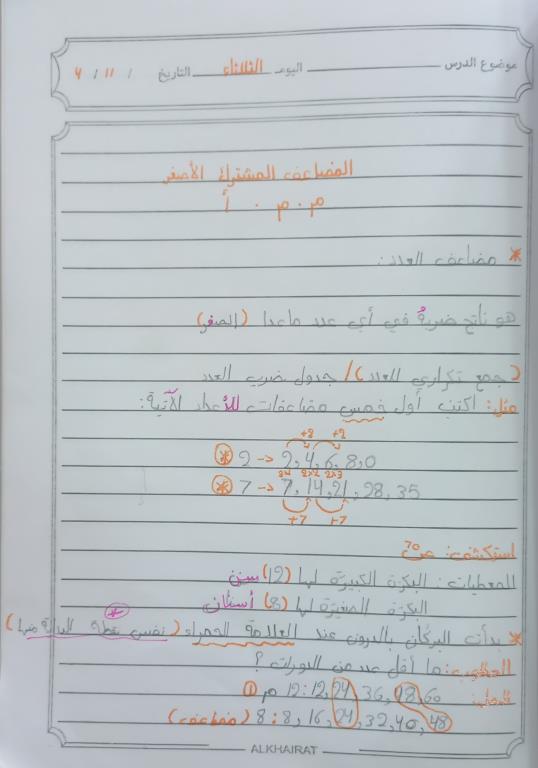 موضوع الدرس اليوم الثلاثاء التاريخ / 11 / 4
المضاعف المشترك الأصغر
م . م . أ
* مضاعف العدد:
هو ناتج ضربهُ في أي عدد ماعدا (الصفر)
(جمع تكراري للعدد) / جدول ضرب العدد
مثل: اكتب أول خمس مضاعفات للأعداد الآتية:
+2 +2
* 2 → 2, 4, 6, 8, 0
2×2 2×3
* 7 → 7, 14, 21, 28, 35
+7 +7
استكشف: ص70
المعطيات: البكرة الكبيرة لها (12) سن
البكرة الصغيرة لها (8) أسنان
* بدأت البكرتان بالدوران عند العلامة الحمراء (نفس نقطة البداية)
المطلوب: ما أقل عدد من الدورات؟
12: 12, 24, 36, 48, 60 م
8: 8, 16, 24, 32, 40, 48 (مضاعف)
ALKHAIRAT